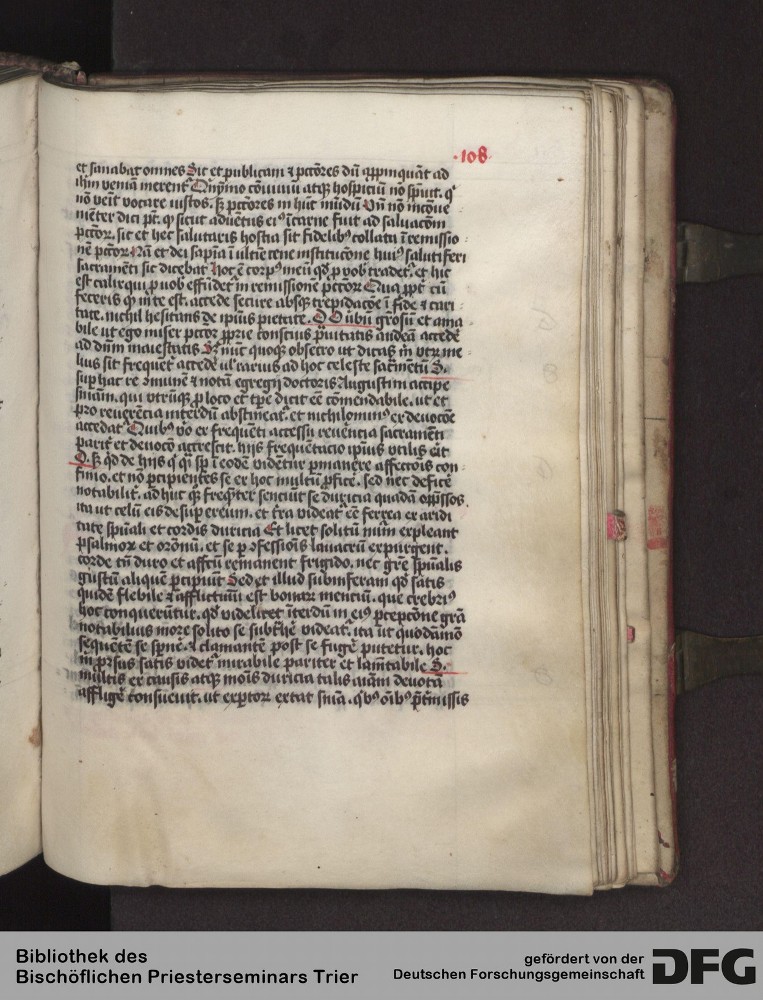 ·108·
et sanabat omnes Sic et publicani ⁊ pctōres dn̄ appinquāt ad
ihm veniā meren̄t Qm̄ īmo cōuiuiū atqꝫ hospiciū nō spuit. q
nō venit vocare iustos. sꝫ pctōres in hūc mūdū Vn̄ nō incōue
niēter dici pt. ꝙ sicut aduētus eiꝰ ī carne fuit ad saluacōm
pctōꝝ. sic et hec salutaris hostia sit fidelibꝰ collata ī remissio
nē pctōꝝ Nā et dei sapīa ī ultīe cene institucōne huiꝰ salutiferi
sacramēti sic dicebat hoc ē corpꝰ meū qd ꝓ vob tradet̄. et hic
est calix qui ꝓ vob effūdet̄ in remissionē pctōꝝ Qua ꝓpt̄ cū
feceris ꝙ in te est. accede secure absqꝫ trepidacōe ī fide ⁊ cari
tate. nichil hesitans de ipius pietate. D O v̄bū grōsū et ama
bile ut ego miser pctōr ꝓprie conscius pͣuitatis audeā accedē
ad dn̄m maiestatis Sꝫ nūc quoqꝫ obsecro ut dicas m̄ vtꝝ me
lius sit frequēt̄ accedē ul̄ rarius ad hoc celeste sacm̄etū S.
sup hac re ꝯmunē ⁊ notā egregij doctoris Augustini accipe
sn̄iam. qui vtrūqꝫ ꝓ loco et tp̄e dicit eē cōmendabile. ut et
pro reuerēcia interdū abstineat̄. et nichilominꝰ ex deuocōe
accedat̄ Quibꝰ v̄o ex frequēti accessu reuēntia sacramēti
parit̄ et deuocō accrescit. hijs frequētacio ipius vtilis eit
D. Sꝫ qd de hijs q qi sp ī eodē vidētur pmanēre affectōis con
finio. et nō pcipientes se ex hoc multū ꝓficē. sed nec deficē
notabilit̄. ad huc qꝫ freqn̄ter senciūt se duricia quadā opp̄ssos.
ita ut celū eis desup ereum. et tr̄a videat̄ eē ferrea ex aridi
tate spūali et cordis duricia Et licet solitū nūm expleant
psalmoꝝ et orōnū. et se p ꝯfessiōis lauacrū expurgent.
corde tn̄ duro et affctū remanent frigido. nec grē spūalis
gustū aliquē pcipiūt Sed et illud subinferam qd satis
quidē flebile ⁊ afflictiuū est bonaꝝ mentiū. que crebriꝰ
hoc conquerūtur. qd videlicet īterdū in eiꝰ pcepcōne grā
notabilius more solito se subtʰē videat̄. ita ut quodāmō
sequētē se spnē. ⁊ clamantē post se fugē putetur. hoc
in pͦrsus satis videt̄ mirabile pariter et lam̄tabile S.
multis ex causis atqꝫ mōis duricia talis aīam deuotā
affligē consueuit. ut exptoꝝ extat sn̄ia. qibꝰ oībꝰ p̄tmissis
Bibliothek des
Bischöflichen Priesterseminars Trier
gefördert von der
Deutschen Forschungsgemeinschaft
DFG